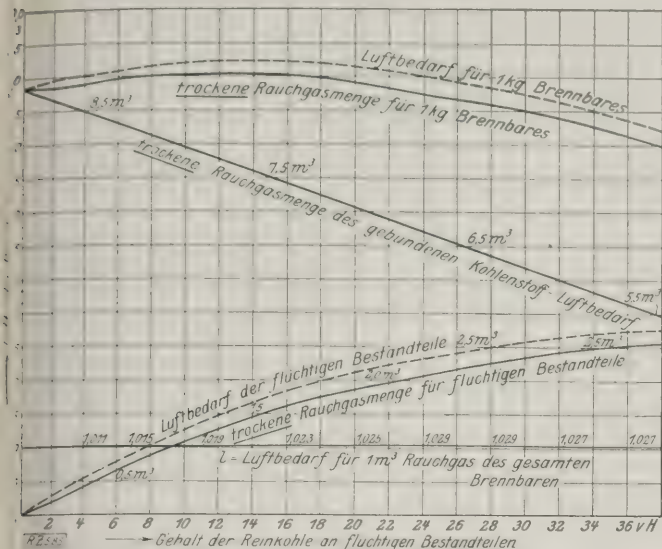 Luftbedarf für 1kg Brennbares
trockene Rauchgasmenge für 1kg Brennbares
8,5m³
7,5m³
trockene Rauchgasmenge des gebundenen Kohlenstoff-Luftbedarf
6,5m³
5,5m³
Luftbedarf der flüchtigen Bestandteile 2,5m³
2,5m³
2,0m³
1,5
trockene Rauchgasmenge für flüchtigen Bestandteile
1,011 1,015 1,019 1,023 1,025 1,029 1,029 1,027 1,027
0,5m³
l = Luftbedarf für 1m³ Rauchgas des gesamten
Brennbaren
2 4 6 8 10 12 14 16 18 20 22 24 26 28 30 32 34 36 vH
Gehalt der Reinkohle an flüchtigen Bestandteilen